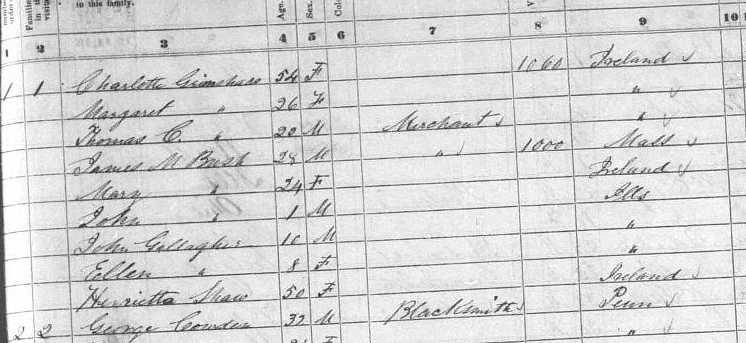 in this family.
Age.
Sex.
1 2 3 4 5 6 7 8 9 10
1 1 Charlotte Grimshaw 54 F 1060 Ireland
Margaret " 26 F "
Thomas C. " 22 M Merchant "
James M Bush 28 M " 1000 Mass
Mary " 24 F Ireland
John " 1 M Ills
John Gallagher 10 M "
Ellen " 8 F "
Henrietta Shaw 50 F Ireland
2 2 George Cowden 32 M Blacksmith Penn
F "